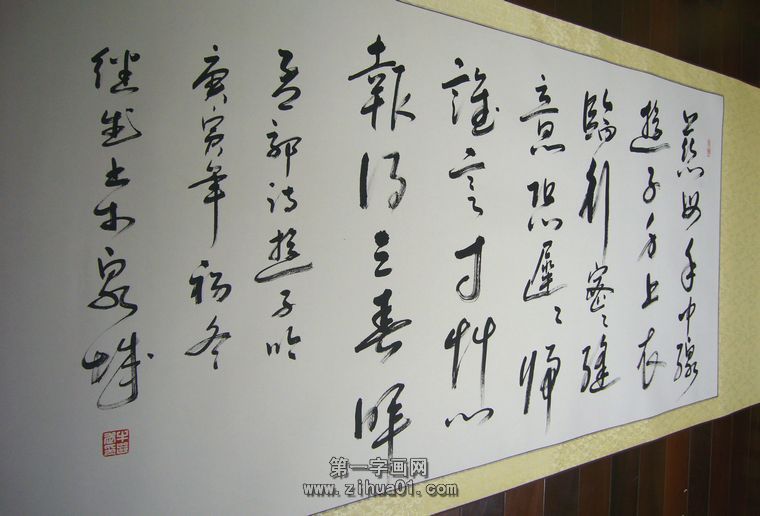 慈母手中線
遊子身上衣
臨行密密縫
意恐遲遲歸
誰言寸艸心
報得三春暉
孟郊詩遊子吟
庚寅年初冬
继生書於泉城
第一字画网
www.zihua01.com